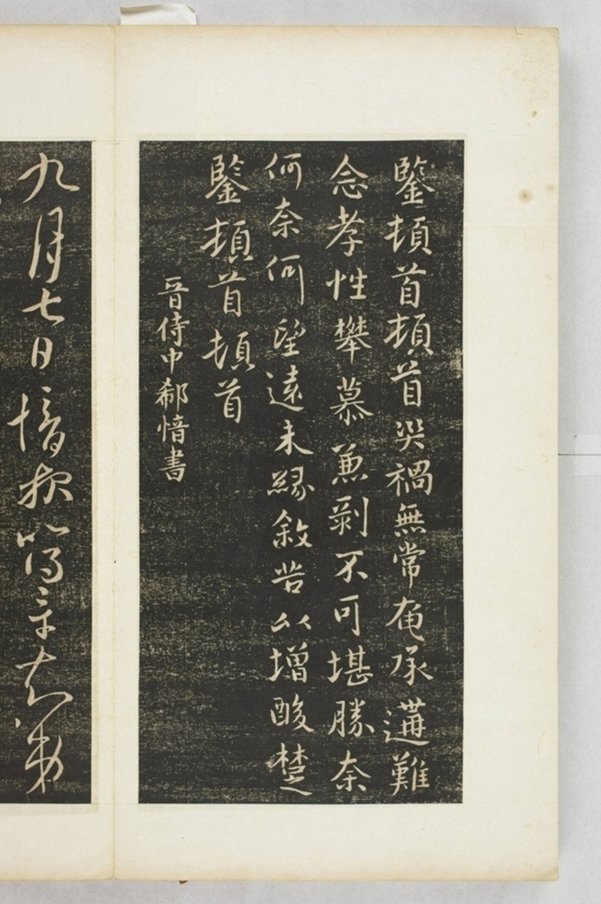 鑒頓首頓首災禍無常奄承遘難
念孝性攀慕兼剝不可堪勝奈
何奈何望遠未緣敘苦以增酸楚
鑒頓首頓首
晉侍中郗愔書
九月七日愔報